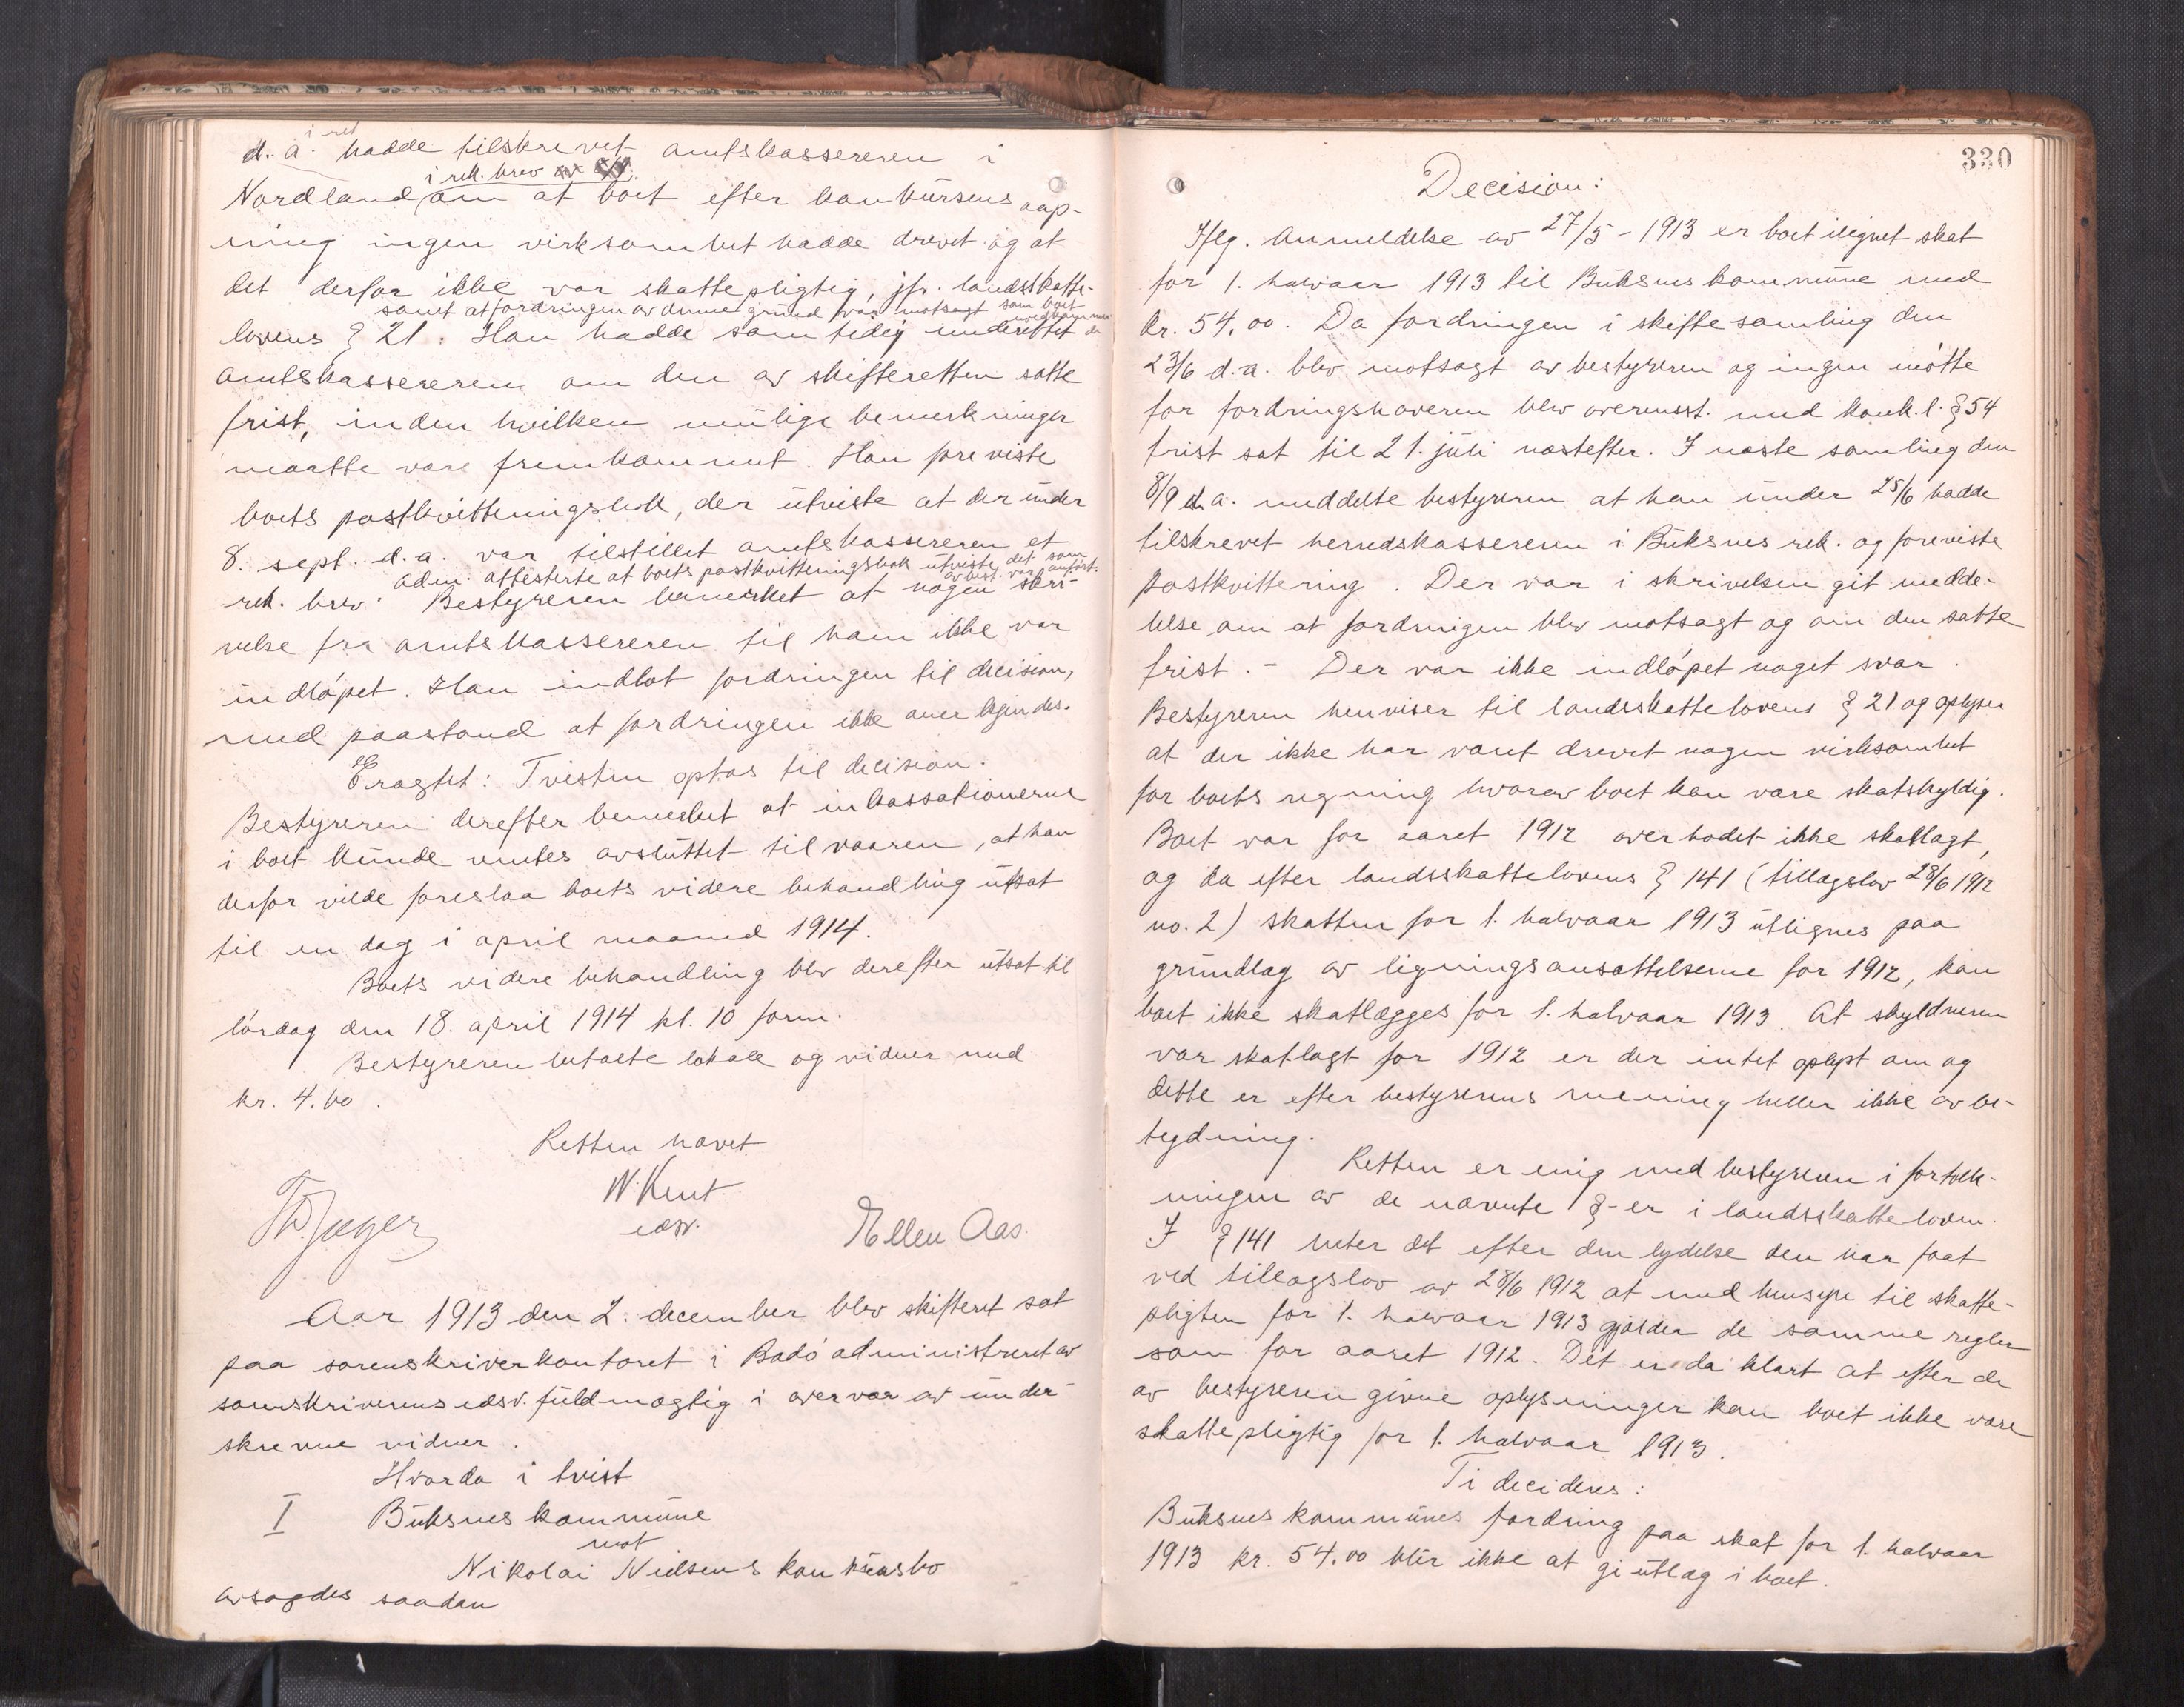 d. a. hadde tilskrevet amtskassereren i
i rek. brev
Nordland om at boet efter konkursens aap-
ning ingen virksomhet hadde drevet og at
det derfor ikke var skattepligtig, jfr. landsskatte-
samt at fordringen av denne grund var motsagt som boet uvedkommende
lovens § 21. Han hadde samtidig underrettet
amtskassereren om den av skifteretten satte
frist, inden hvilken mulige bemerkninger
maatte være fremkommet. Han foreviste
boets postkvitteringsbok, der utviste at der under
8. sept. d.a. var tilstillet amtskassereren et
adm. attesterte at boets postkvitteringsbok utviste det som av best. var anført.
rek. brev. Bestyreren bemerket at nogen skri-
velse fra amtskassereren til ham ikke var
indløpet. Han indlot fordringen til decision,
med paastand at fordringen ikke anerkjendes.
Eragtet: Tvisten optas til decision.
Bestyreren derefter bemerket at inkassationerne
i boet kunde ventes avsluttet til vaaren, at han
derfor vilde foreslaa boets videre behandling utsat
til en dag i april maaned 1914.
Boets videre behandling blev derefter utsat til
lørdag den 18. april 1914 kl. 10 form.
Bestyreren betalte lokale og vidner med
kr. 4.60.
Retten hævet
W. Kent
edsv.
Th. Jæger
Ellen Aas.
Aar 1913 den 2. december blev skifteret sat
paa sorenskriverkontoret i Bodø administreret av
sorenskriverens edsv. fuldmægtig i overvær av under-
skrevne vidner.
Hvorda i tvist
I Buksnes kommune
mot
Nikolai Nielsens konkursbo
avsagdes saadan
330
Decision:
Iflg. anmeldelse av 27/5-1913 er boet ilignet skat
for 1. halvaar 1913 til Buksnes kommune med
kr. 54,00. Da fordringen i skiftesamling den
23/6 d.a. blev motsagt av bestyreren og ingen møtte
for fordringshaveren blev overensst. med konk.l. § 54
frist sat til 21. juli næstefter. I næste samling den
8/9 d.a. meddelte bestyreren at han under 25/6 hadde
tilskrevet herredskassereren i Buksnes rek. og foreviste
postkvittering. Der var i skrivelsen git medde-
lelse om at fordringen blev motsagt og om den satte
frist. - Der var ikke indløpet noget svar.
Bestyreren henviser til landsskattelovens § 21 og oplyser
at der ikke har været drevet nogen virksomhet
for boets regning hvorav boet kan være skatskyldig.
Boet var for aaret 1912 overhodet ikke skatlagt,
og da efter landsskattelovens § 141 (tillægslov 28/6 1912
no. 2) skatten for 1. halvaar 1913 utlignes paa
grundlag av ligningsansættelserne for 1912, kan
boet ikke skatlægges for 1. halvaar 1913. At skyldneren
var skatlagt for 1912 er der intet oplyst om og
dette er efter bestyrerens mening heller ikke av be-
tydning.
Retten er enig med bestyreren i fortolk-
ningen av de nævnte §-er i landsskatteloven.
I § 141 heter det efter den lydelse den har faat
ved tillægslov av 28/6 1912 at med hensyn til skatte-
pligten for 1. halvaar 1913 gjælder de samme regler
som for aaret 1912. Det er da klart at efter de
av bestyreren givne oplysninger kan boet ikke være
skattepligtig for 1. halvaar 1913.
Ti decideres:
Buksnes kommunes fordring paa skat for 1. halvaar
1913 kr. 54.00 blir ikke at gi utlæg i boet.